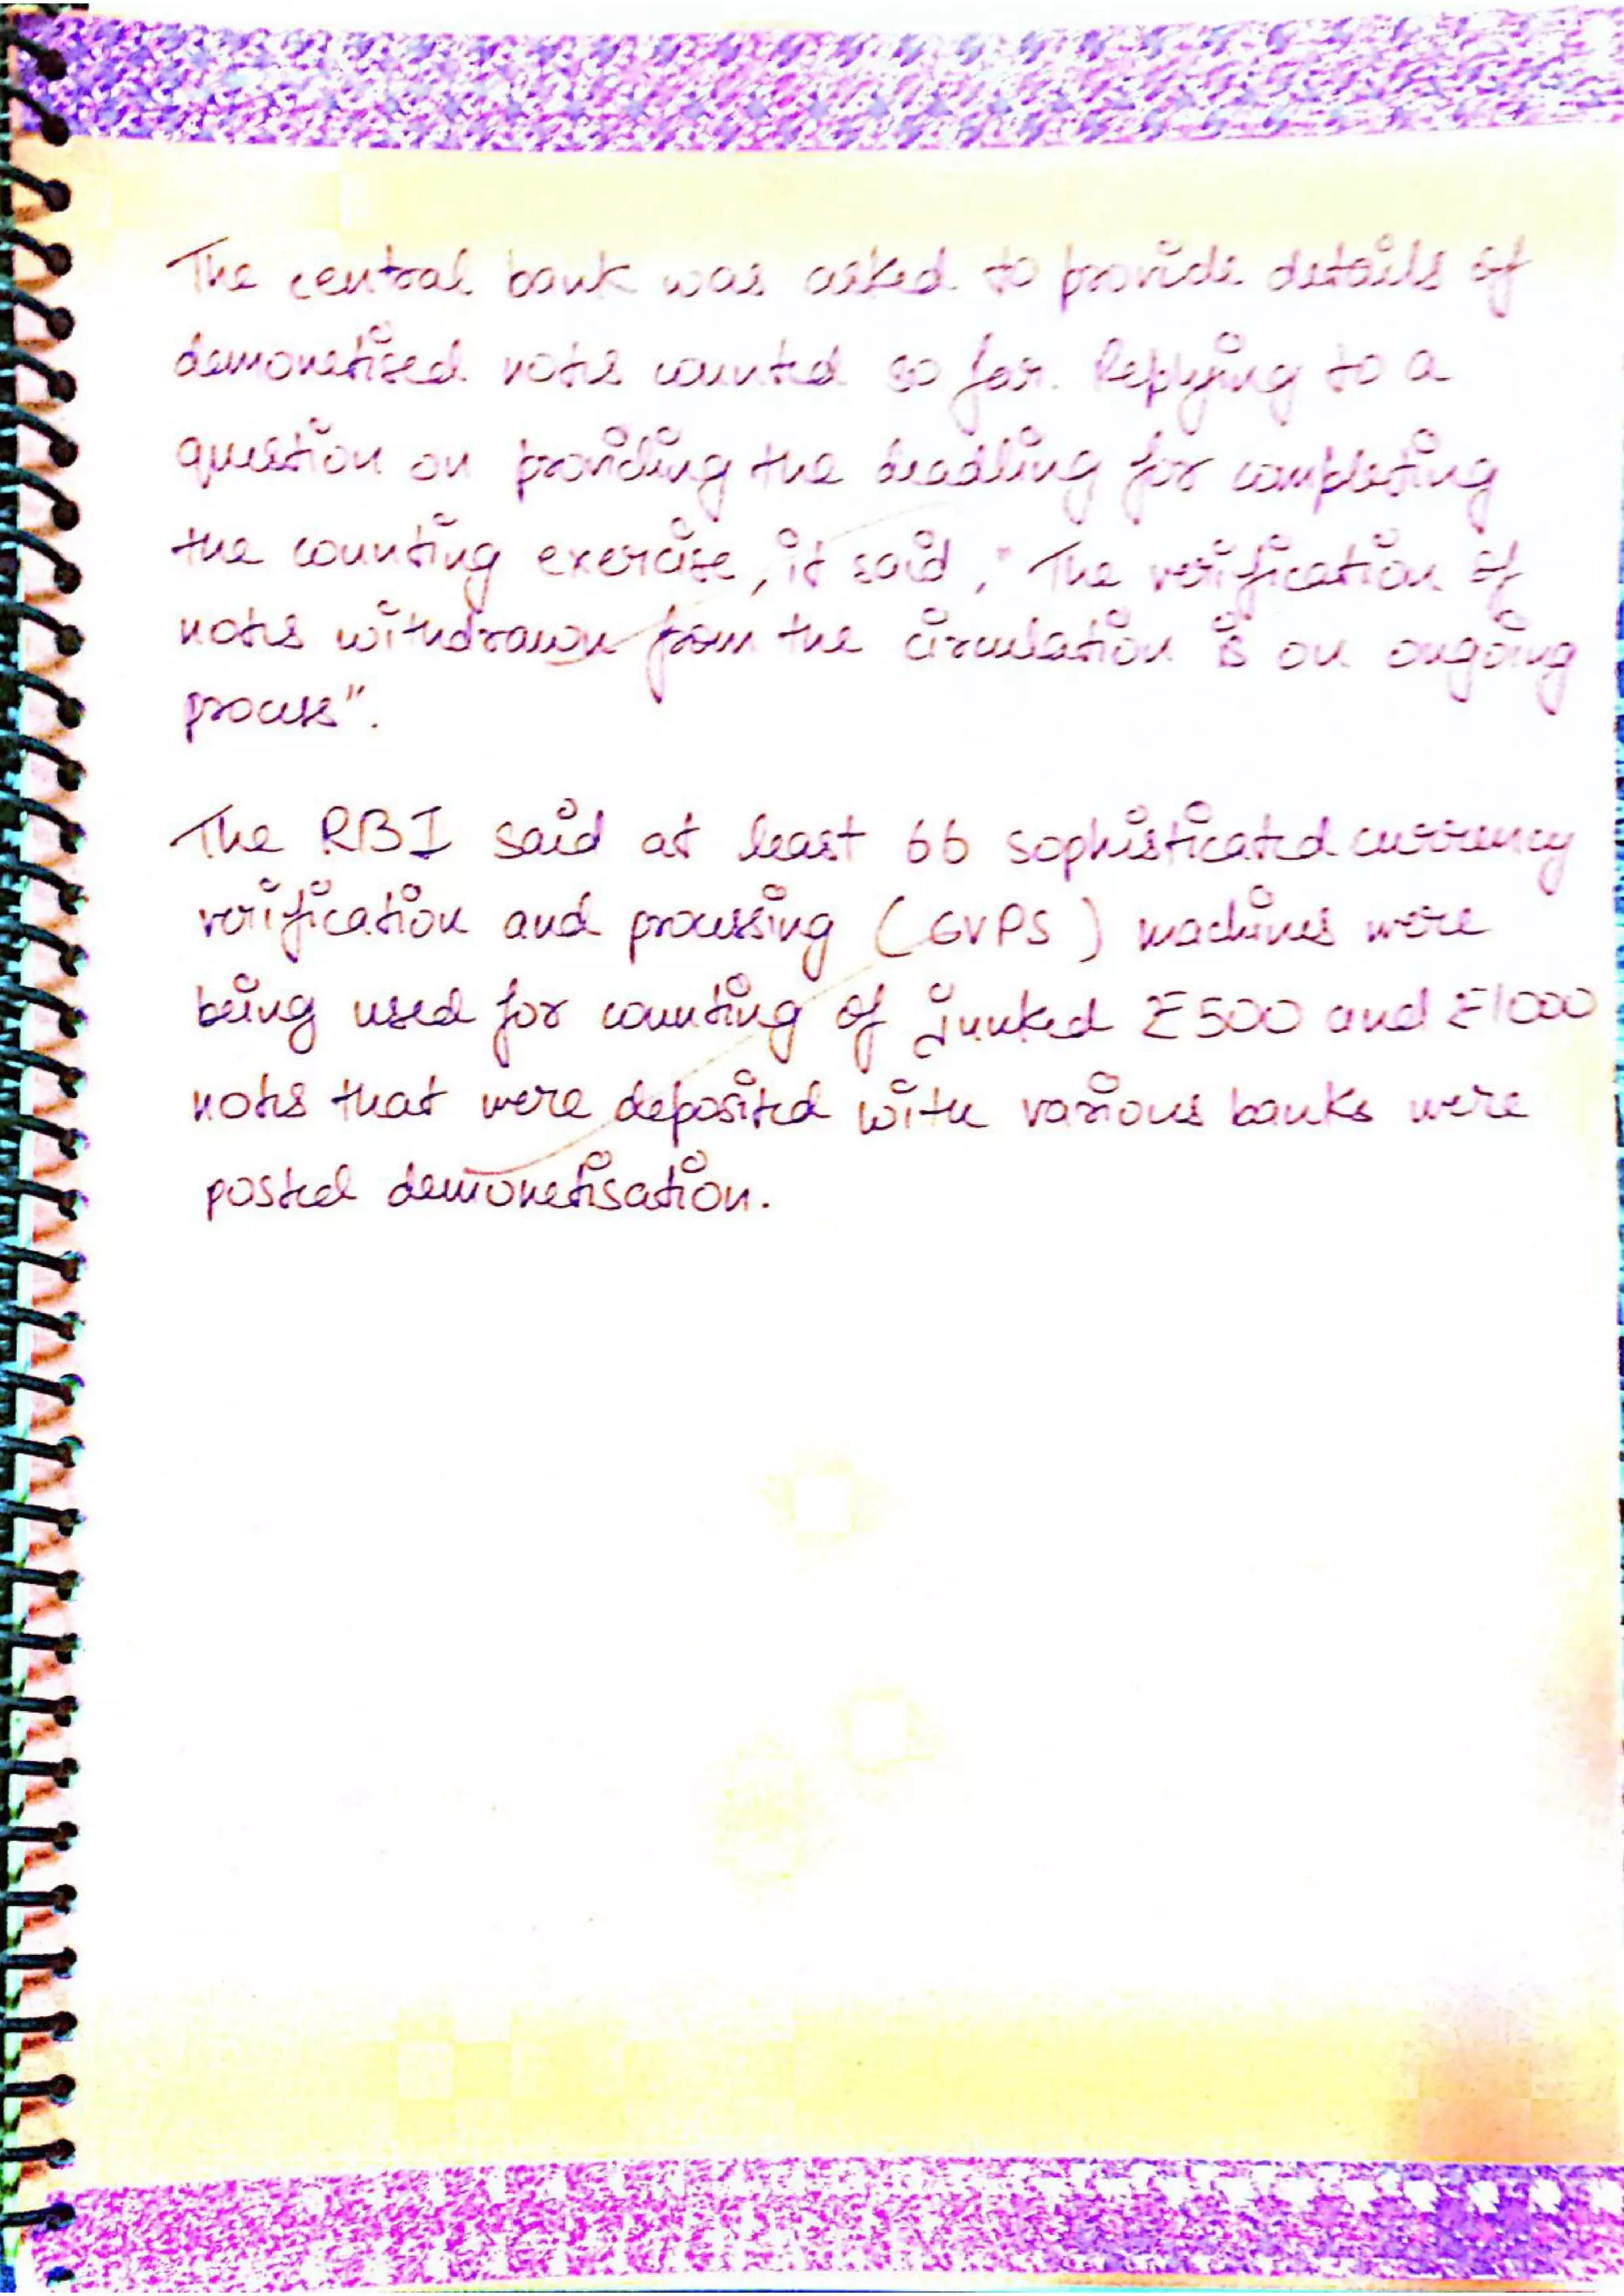 The central bank was asked to provide details of
demonetised notes counted so far. Replying to a
question on providing the deadling for completing
the counting exercise, it said, "The verification of
notes withdrawn from the circulation is on ongoing
process".
The RBI said at least 66 sophisticated currency
verification and processing (GVPS) machines were
being used for counting of junked ₹500 and ₹1000
notes that were deposited with various banks were
posted demonetisation.